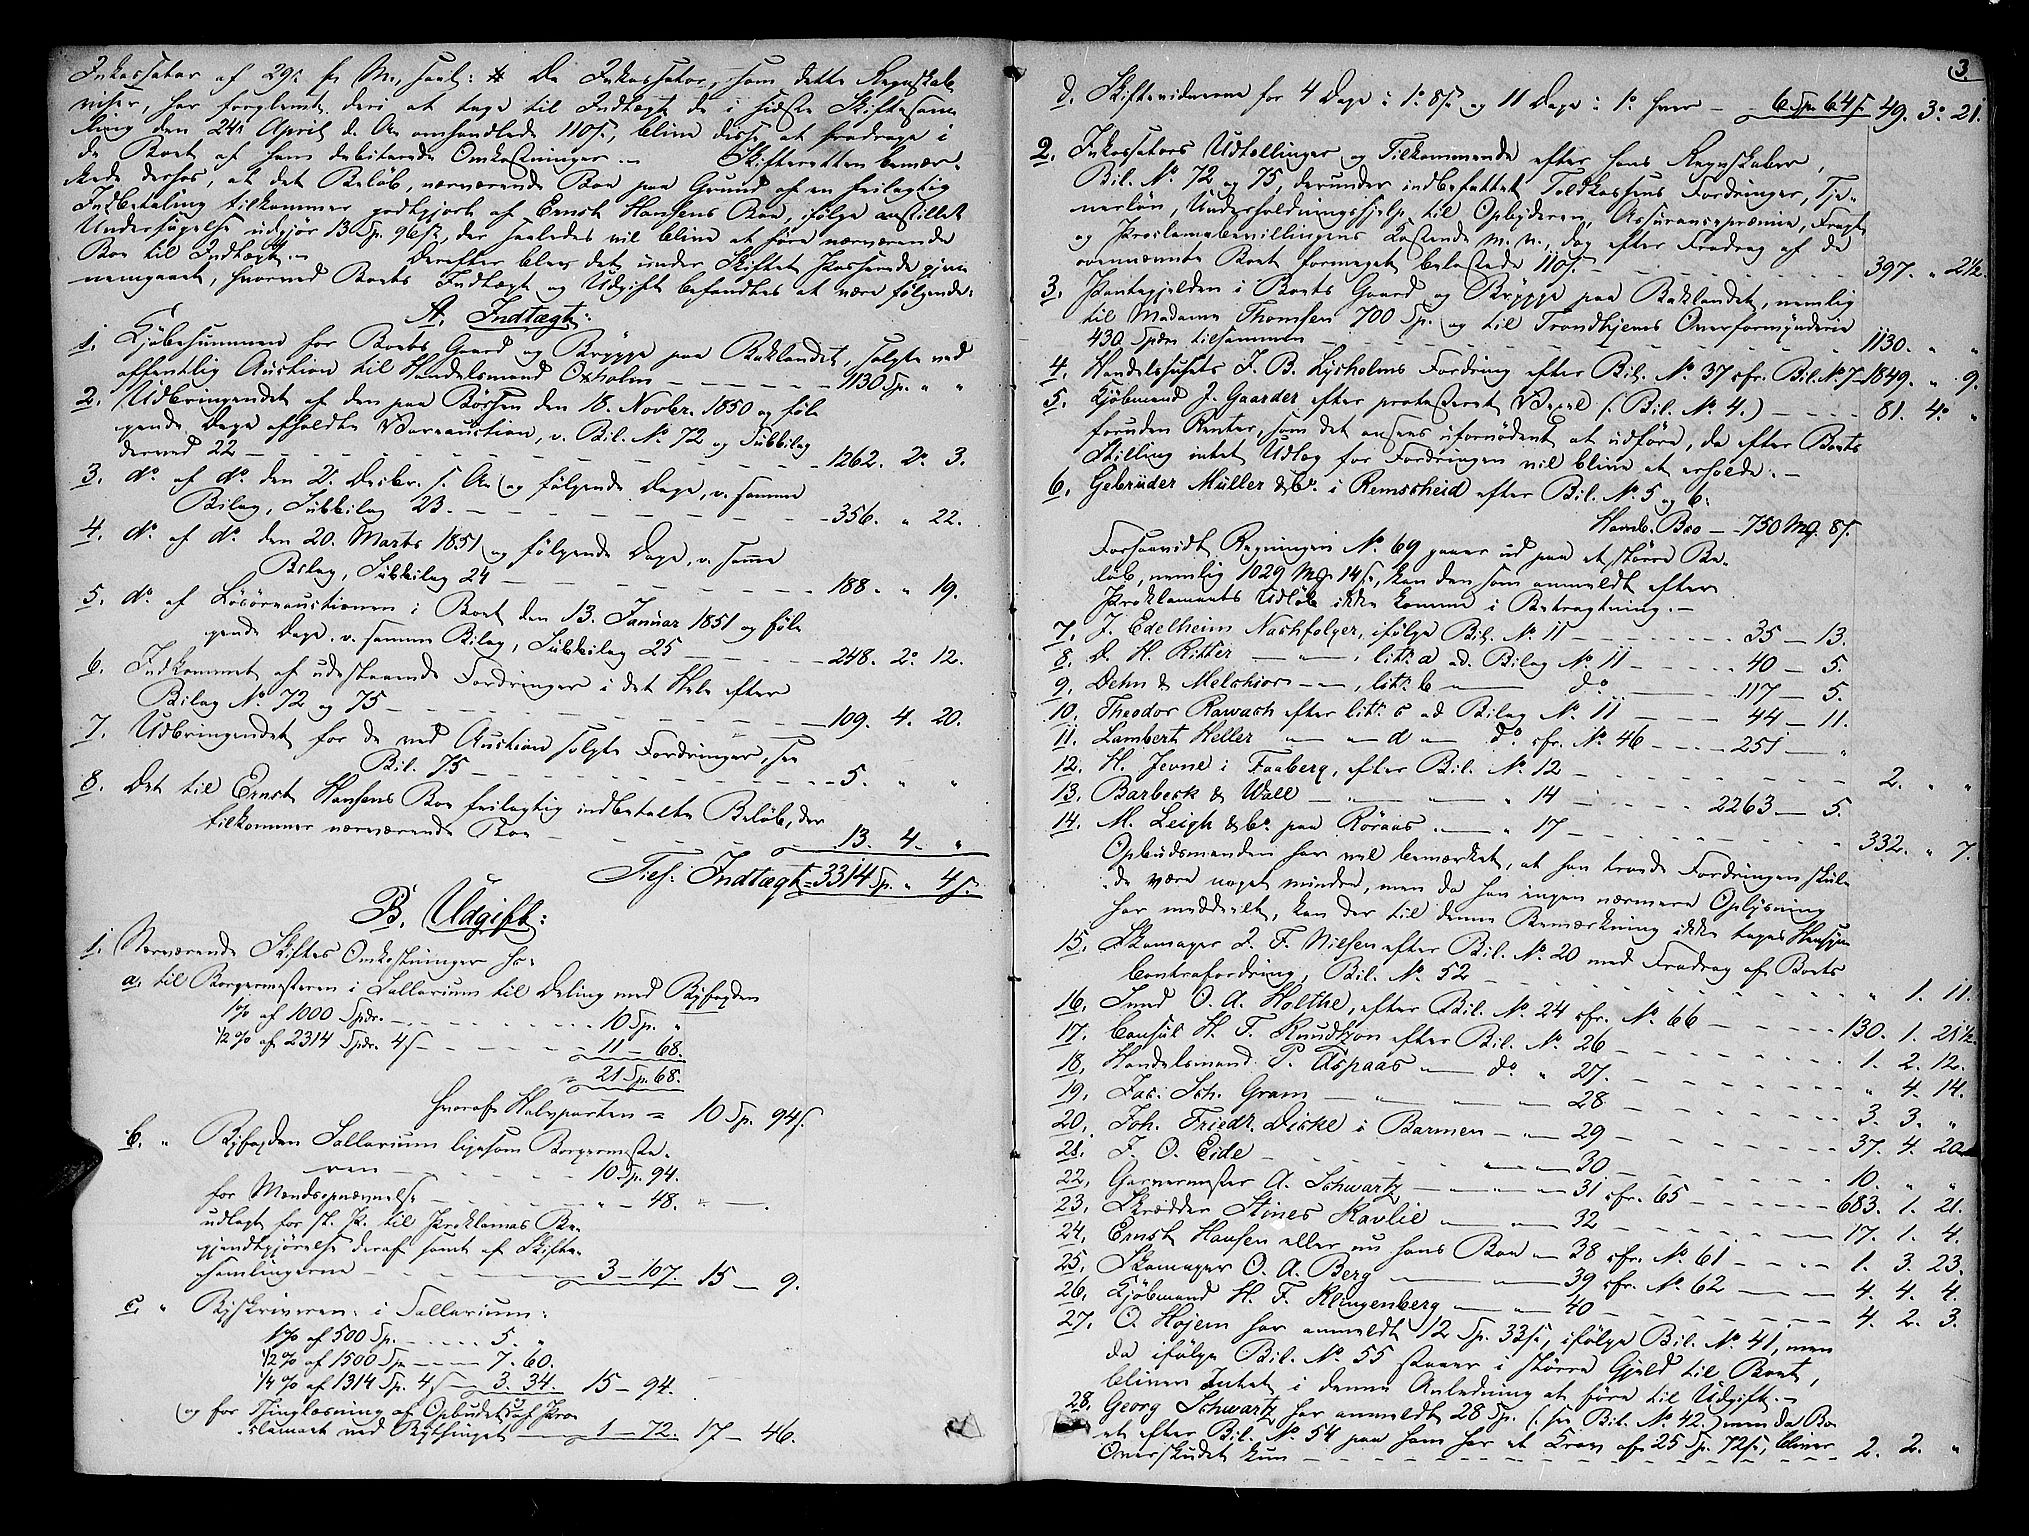 Inkassator af 29de f. M., saal: # Da Inkassator, som dette Regnskab
viser, har forglemt deri at tage til Indtægt de i sidste Skiftesam-
ling den 24de April d. A. omhandlede 110 s., bliver disse at fradrage i
de Boet af ham debiterede Omkostninger. — Skifteretten bemær-
kede derhos, at det Beløb, nærværende Boe paa Grund af en feilagtig
Indbetaling tilkommer godtgjort af Ernst Hansens Boe, ifølge anstillet
Undersøgelse udgjør 13 Sp. 96 s., der saaledes vil blive at føre nærværende
Boe til Indtægt. — Derefter blev det under Skiftet Passerede gjen-
nemgaaet, hvorved Boets Indtægt og Udgift befandtes at være følgende:
A. Indtægt:
1. Kjøbesummen for Boets Gaard og Brygge paa Baklandet, solgte ved
offentlig Auction til Handelsmand Oxholm — 1130 Sp. " "
2. Udbringendet af den paa Børsen den 18. Novbr. 1850 og føl-
gende Dage afholdte Vareauction, v. Bil. No. 72 og Subbilag
derved 22 — 1262. 2. 3.
3. do. af do. den 2. Decbr. s. A. og følgende Dage, v. samme
Bilag, Subbilag 23. — 356. " 22.
4. do. af do. den 20. Marts 1851 og følgende Dage, v. samme
Bilag, Subbilag 24 — 188. " 19.
5. do. af Løsøreauctionen i Boet den 13. Januar 1851 og føl-
gende Dage. v. samme Bilag, Subbilag 25 — 248. 2. 12.
6. Indkommet af udestaaende Fordringer i det Hele efter
Bilag No. 72 og 75 — 109. 4. 20.
7. Udbringendet for de ved Auction solgte Fordringer, see
Bil. 75 — 5. " "
8. Det til Ernst Hansens Boe feilagtig indbetalte Beløb, der
tilkommer nærværende Boe — 13. 4. "
Tils. Indtægt = 3314 Sp. " 4 s.
B. Udgift:
1. Nærværende Skiftes Omkostninger
a, til Borgermesteren i Sallarium til Deling med Byfogden
1% af 1000 Spdr. — 10 Sp. "
1/2% af 2314 Spdr. 4 s — 11 – 68.
= 21 Sp. 68.
hvoraf Halvparten = 10 Sp. 94 s.
b. " Byfogden Sallarium ligesom Borgermeste-
ren — 10 Sp. 94.
for Mændsopnævnelse — " – 48.
udlagt for st. P. til Proklamas Be-
kjendtgjørelse deraf samt af Skifte-
samlingerne — 3 – 107. 15 – 9.
c. " Byskriveren: i Sallarium:
1% af 500 Sp. — 5. "
1/2% af 1500 Sp — 7. 60.
1/4% af 1314 Sp. 4 s — 3. 34. 15 – 94.
og for Thinglæsning af Opbudet af Pro-
clamaet ved Bythinget — 1 – 72. 17 – 46.
3.
d. Skiftevidnerne for 4 Dage i 1. 8 s. og 11 Dage i 1. hver — 6 Sp. 64 s. 49. 3. 21.
2. Inkassators Udtællinger og Tilkommende efter hans Regnskaber,
Bil. No. 72 og 75, derunder indbefattet Toldkassens Fordringer, Tje-
nerløn, Underholdningshjelp til Opbyderen, Assurancepræmie, Fragt
og Proclamabevillingens Kostende m. v., dog efter Fradrag af de
ovennævnte Boet formeget belastede 110 s. — 397. " 2 1/2.
3. Pantegjelden i Boets Gaard og Brygge paa Baklandet, nemlig
til Madame Thomsen 700 Sp. og til Trondhjems Overformynderie
430 Spdr. tilsammen — 1130. " "
4. Handelshusets J. B. Lysholms Fordring efter Bil. No. 37 cfr. Bil. No. 7 – 1849. " 9.
5. Kjøbmand J. Gaarder efter protesteret Vexel (: Bil. No. 4.) — 81. 4. "
foruden Renter, som det ansees ufornødent at udføre, da efter Boets
Stilling intet Udlæg for Fordringen vil blive at erholde. —
6. Gebrüder Müller & Co. i Remscheid efter Bil. No. 5 og 6.
Hamb. Bco — 750 Mq. 8 s.
Forsaavidt Regningen No. 69 gaaer ud paa et større Be-
løb, nemlig 1029 Mq. 14 s., kan den som anmeldt efter
Proklamaets Udløb ikke komme i Betragtning. —
7. J. Edelheim Nachfolger, ifølge Bil. No. 11 — 35 – 13.
8. D. H. Ritter — " —, litr. a ad. Bilag No. 11 — 40 – 5.
9. Dehn & Melchior — " —, litr. b — do. — 117 – 5.
10. Theodor Rawach efter litr. c ad Bilag No. 11 — 44 – 11.
11. Lambert Heller — " — d — " — do. cfr. No. 46 — 251 — "
12. H. Jevne i Faaberg, efter Bil. No. 12 — 2. " "
13. Barbeck & Wall — " — 14 — 2263 — 5.
14. M. Leigh & Co. paa Røraas — " 17 — 332. " 7.
Opbudsmanden har vel bemærket, at han troede Fordringen skul-
de være noget mindre, men da han ingen nærmere Oplysning
har meddeelt, kan der til denne Bemærkning ikke tages Hensyn.
15. Skomager J. F. Nielsen efter Bil. No. 20 med Fradrag af Boets
Contrafordring, Bil. No. 52 — " 1. 11.
16. Smed O. A. Holthe, efter Bil. No. 24 cfr. No. 66 — 130. 1. 21 1/2.
17. Consul H. F. Knudtzon efter Bil. No. 26 — 1. 2. 12.
18. Handelsmand P. Aspaas — do " 27. — " 4. 14.
19. Jac. Sch. Gram — " — 28 — 3. 3. "
20. Joh. Friedr. Dicke i Barmen — " — 29 — 37. 4. 20
21. J. O. Eide — " — 30 — 10. " "
22. Garvermester A. Schwartz — " — 31 cfr. 65 — 683. 1. 21.
23. Skrædder Stines Kavlie — " — 32 — 17. 1. 4.
24. Ernst Hansen eller nu hans Boe — 38 cfr. No. 61 — 1. 3. 23.
25. Skomager O. A. Berg — " — 39 cfr. No. 62 — 4. 4. 4.
26. Kjøbmand H. F. Klingenberg — " — 40 — 4. 2. 3.
27. O. Højem har anmeldt 12 Sp. 33 s., ifølge Bil. No. 41, men
da ifølge Bil. No. 55 staaer i større Gjeld til Boet,
bliver Intet i denne Anledning at føre til Udgift. —
28. Georg Schwartz har anmeldt 28 Sp. (: see Bil. No. 42.) men da Bo-
et efter Bil. No. 54 paa ham har et Krav af 25 Sp. 72 s., bliver
Overskudet kun — 2. 2. "